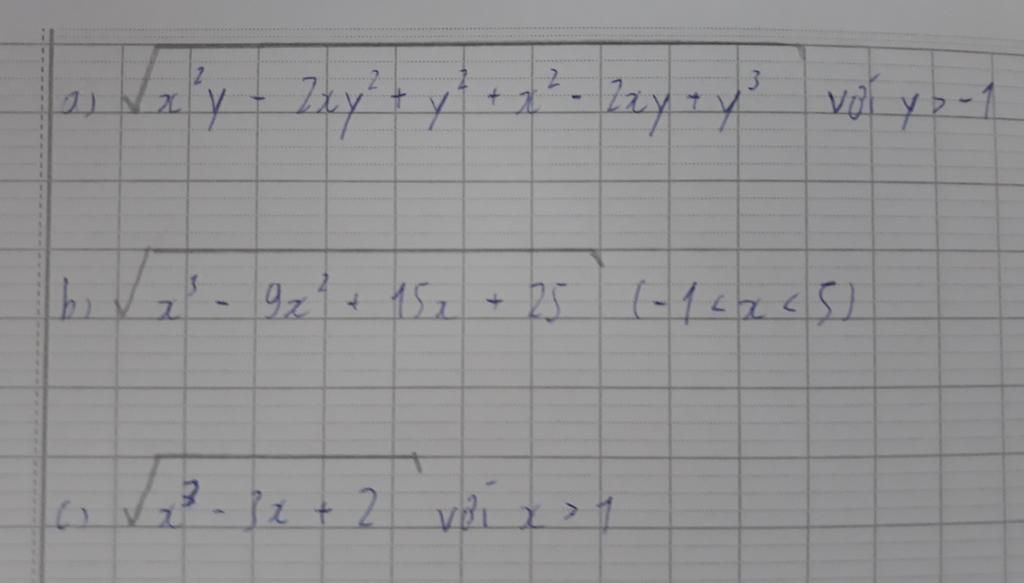 a) √(x²y - 2xy² + y² + x² - 2xy + y³) với y > -1
b) √(x³ - 9x² + 15x + 25) (-1 < x < 5)
c) √(x³ - 3x + 2) với x > 1